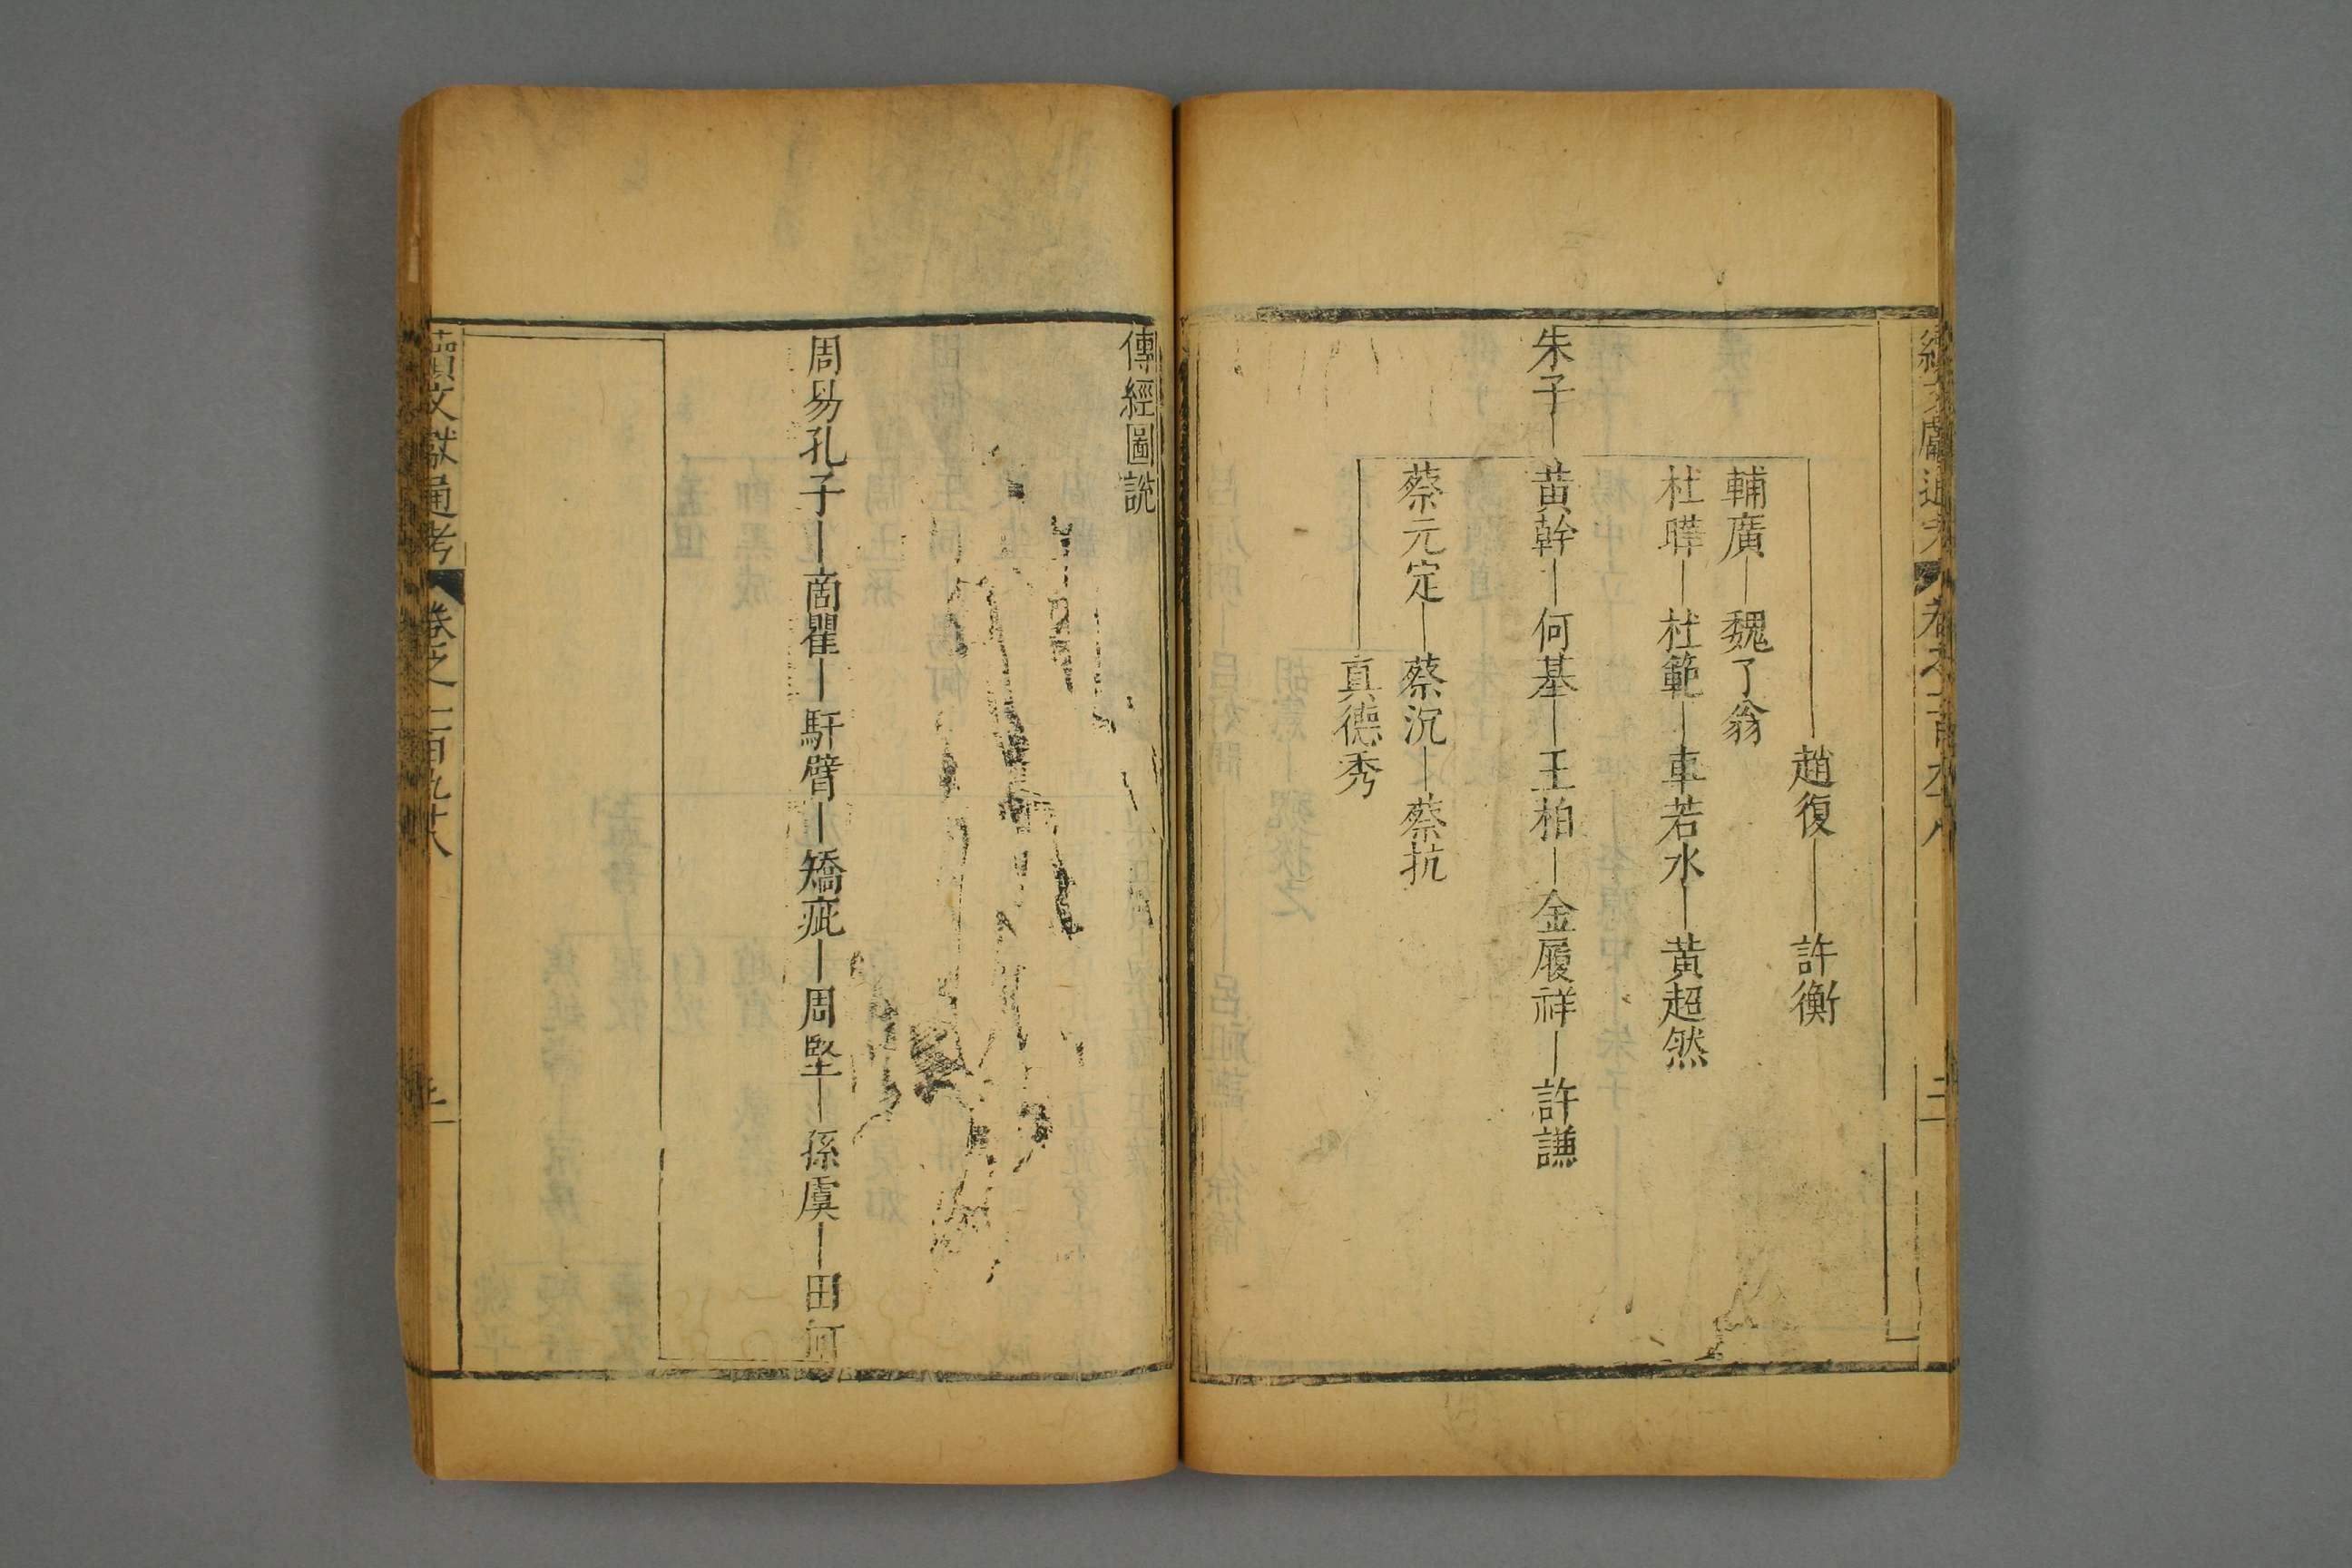 趙復 許衡
輔廣 魏了翁
杜曄 杜範 車若水 黃超然
朱子 黃幹 何基 王柏 金履祥 許謙
蔡元定 蔡沉 蔡抗
真德秀
傳經圖說
周易孔子 商瞿 馯臂 矯疵 周堅 孫虞 田何
續文獻通考 卷之一百九十八